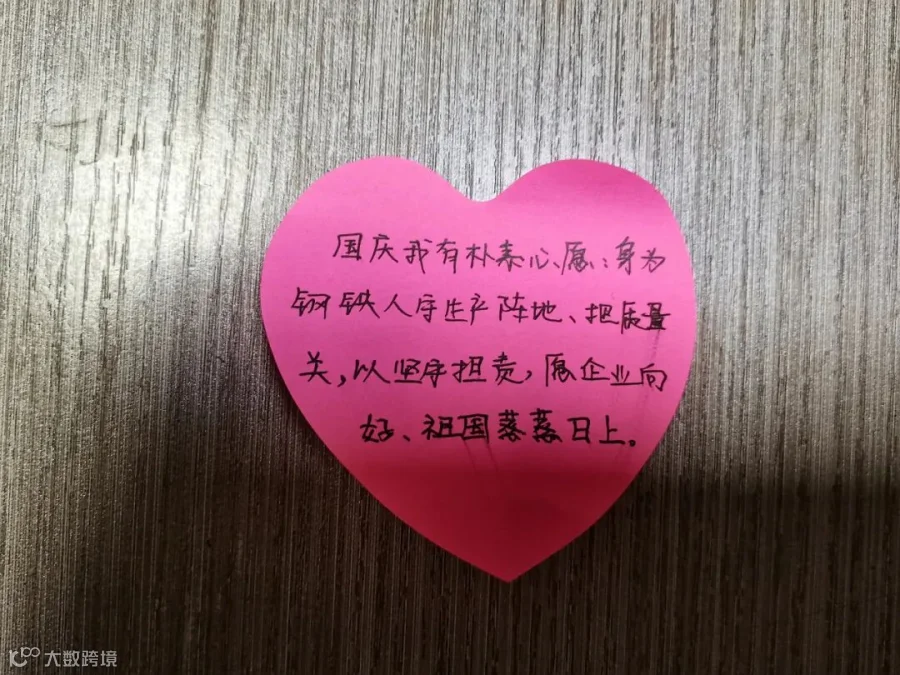 国庆我有朴素心愿：身为
钢铁人守生产阵地、把质量
关，以坚守担责，愿企业向
好、祖国蒸蒸日上。
大数跨境